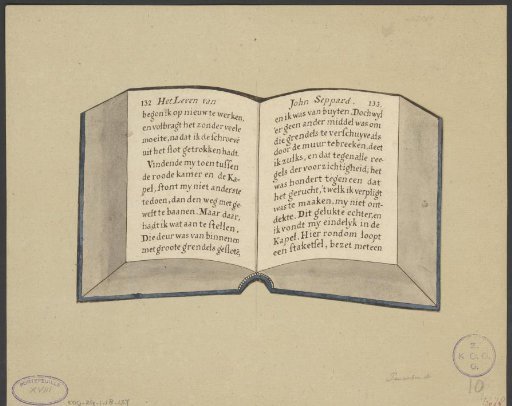 132 Het Leven van
begon ik op nieuw te werken,
en volbragt het zonder veele
moeite, na dat ik de schroeve
uit het slot getrokken hadt.
Vindende my toen tussen
de roode kamer en de Ka-
pel, stont my niet anders te
te doen, dan den weg met ge-
welt te baanen. Maar daar,
hadt ik wat aan te stellen,
Die deur was van binnen en
met groote grendels geslote,
John Seppard. 133
en ik was van buyten. Dochwyl
'er geen ander middel was om
die grendels te verschuyve als
door de muur te breeken, deet
ik zulks, en dat tegen alle ree-
gels der voorzichtigheid, het
was hondert tegen een dat
het gerucht, 't welk ik verpligt
was te maaken, my niet ont-
dekte. Dit gelukte echter, en
ik vondt my eindelyk in de
Kapel. Hier rondom loopt
een staketsel, bezet met een
PORTEFEUILLE
XVIII
Z.
K. O. G.
G.
10